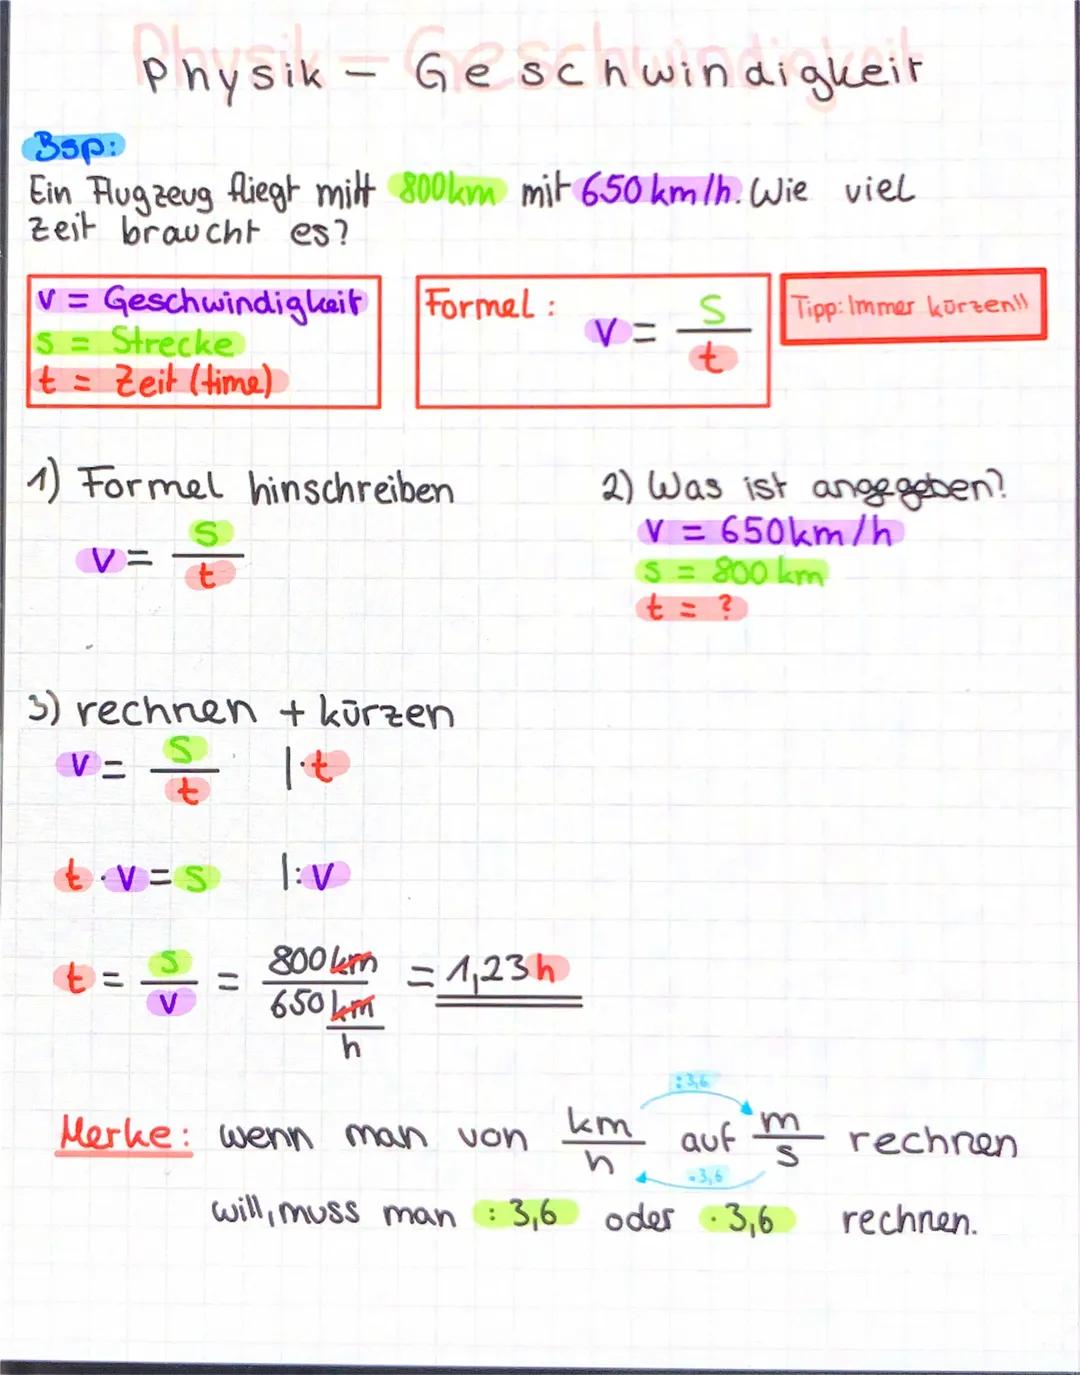 Physik – Geschwindigkeit
Bsp:
Ein Flugzeug fliegt mitt 800km mit 650 km/h. Wie viel
Zeit braucht es?
v = Geschwindigkeit
s = Strecke
t = Zeit (time)
Formel: v = s/t
Tipp: Immer kürzen!!
1) Formel hinschreiben
v = s/t
2) Was ist angegeben?
v = 650km/h
s = 800 km
t = ?
3) rechnen + kürzen
v = s/t |·t
t · v = s |:v
t = s/v = 800 km / 650 km/h = 1,23 h
:3,6
Merke: wenn man von km/h auf m/s rechnen
·3,6
will, muss man : 3,6 oder · 3,6 rechnen.